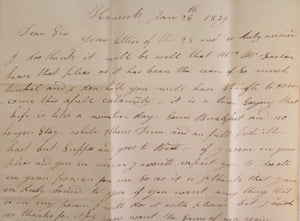 Hancock Jany 26th 1839
Dear Sir Your letter of the 25 inst is duly received
I do think it will be well that Mrs Mc
leave that place as it has been the cause of so much
trubel and I do hope you will have strength to over
come this afull calamity - it is a true saying that
Life is like a winter day Some Breakfast and no
longer Stay while others Dine and are full fed the
last but Suppes and goes to Bead - if I were in your
place and you in mine I would expect you to do all
in your power for me So as it is I think that I am
in duty bound to you if you want any thing that
is in my power I will do it with pleasure but I wish
no thanks for it you want the same of